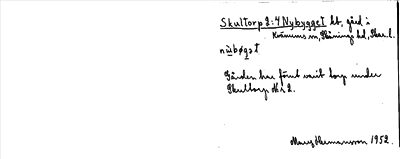 Skultorp 2:4 Nybygget hb, gård i
Kinneving hd, Skar. l.
nùbøgət
Gården har förut varit torp under
Skultorp Nr 2.
Hermansson 1952.